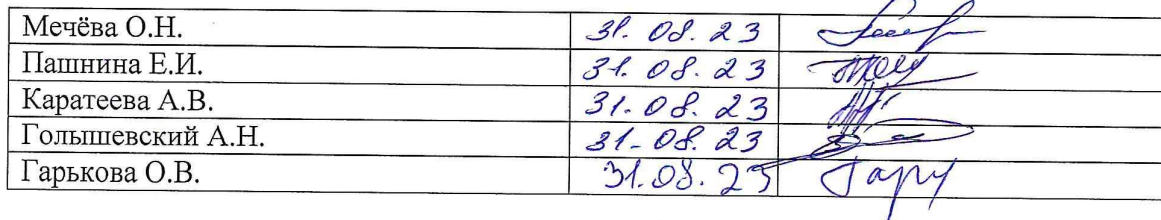 Мечёва О.Н. 31.08.23
Пашнина Е.И. 31.08.23
Каратеева А.В. 31.08.23
Голышевский А.Н. 31.08.23
Гарькова О.В. 31.08.23